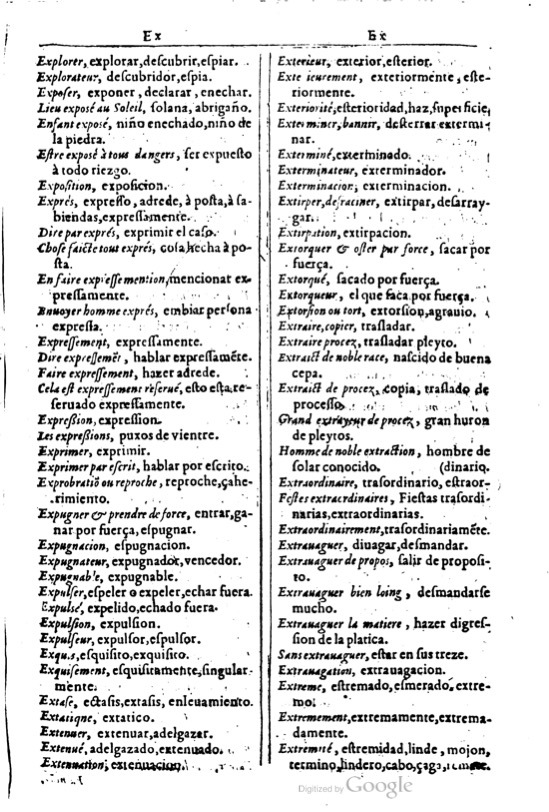 Ex
Explorer, explorar, descubrir, eſpiar.
Explorateur, deſcubridor, eſpia.
Expoſer, exponer, declarar, enechar.
Lieu expoſé au Soleil, ſolana, abrigaño.
Enfant expoſé, niño enechado, niño de
la piedra.
Eſtre expoſé à tous dangers, ſer expueſto
à todo riezgo.
Expoſition, expoſicion.
Exprés, expreſſo, adrede, à poſta, à ſa-
biendas, expreſſamente.
Dire par exprés, exprimir el caſo.
Choſe faicte tout exprés, coſa hecha à po-
ſta.
En faire expreſſe mention, mencionat ex-
preſſamente.
Enuoyer homme exprés, embiar perſona
expreſſa.
Expreſſement, expreſſamente.
Dire expreſſemẽt, hablar expreſſamẽte.
Faire expreſſement, hazer adrede.
Cela eſt expreſſement reſerué, eſto eſta, re-
ſeruado expreſſamente.
Expreßion, expreſſion.
Les expreßions, puxos de vientre.
Exprimer, exprimir.
Exprimer par eſcrit, hablar por eſcrito.
Exprobratiõ ou reproche, reproche, çahe-
rimiento.
Expugner & prendre de force, entrar, ga-
nar por fuerça, eſpugnar.
Expugnacion, eſpugnacion.
Expugnateur, expugnador, vencedor.
Expugnable, expugnable.
Expulſer, eſpeler o expeler, echar fuera.
Expulsé, expelido, echado fuera.
Expulſion, expulſion.
Expulſeur, expulſor, eſpulſor.
Exquis, eſquiſito, exquiſito.
Exquiſement, eſquiſitamente, ſingular-
mente.
Extaſe, ectaſis, extaſis, enleuamiento.
Extatique, extatico.
Extenuer, extenuar, adelgazar.
Extenué, adelgazado, extenuado.
Extenuation, extenuacion.
Ex
Exterieur, exterior, eſterior.
Exterieurement, exteriormente, eſte-
riormente.
Exteriorité, eſterioridad, haz, ſuperficie,
Exterminer, bannir, deſterrar extermi-
nar.
Exterminé, exterminado.
Exterminateur, exterminador.
Exterminacion, exterminacion.
Extirper, deſraciner, extirpar, deſarray-
gar.
Extirpation, extirpacion.
Extorquer & oſter par force, ſacar por
fuerça.
Extorqué, ſacado por fuerça.
Extorqueur, el que ſaca por fuerça.
Extorſion ou tort, extorſion, agrauio.
Extraire, copier, traſladar.
Extraire procez, traſladar pleyto.
Extraict de noble race, naſcido de buena
cepa.
Extraict de procez, copia, traſlado de
proceſſo.
Grand extrayeur de procez, gran huron
de pleytos.
Homme de noble extraction, hombre de
ſolar conocido. (dinario.
Extraordinaire, traſordinario, eſtraor-
Feſtes extraordinaires, Fieſtas traſordi-
narias, extraordinarias.
Extraordinairement, traſordinariamẽte.
Extrauaguer, diuagar, deſmandar.
Extrauaguer de propos, ſalir de propoſi-
to.
Extrauaguer bien loing, deſmandarſe
mucho.
Extrauaguer la matiere, hazer digreſ-
ſion de la platica.
Sans extrauaguer, eſtar en ſus treze.
Extrauagation, extrauagacion.
Extreme, eſtremado, eſmerado, extre-
mo.
Extremement, extremamente, extrema-
damente.
Extremité, eſtremidad, linde, mojon,
termino, lindero, cabo, çaga,
Digitized by Google